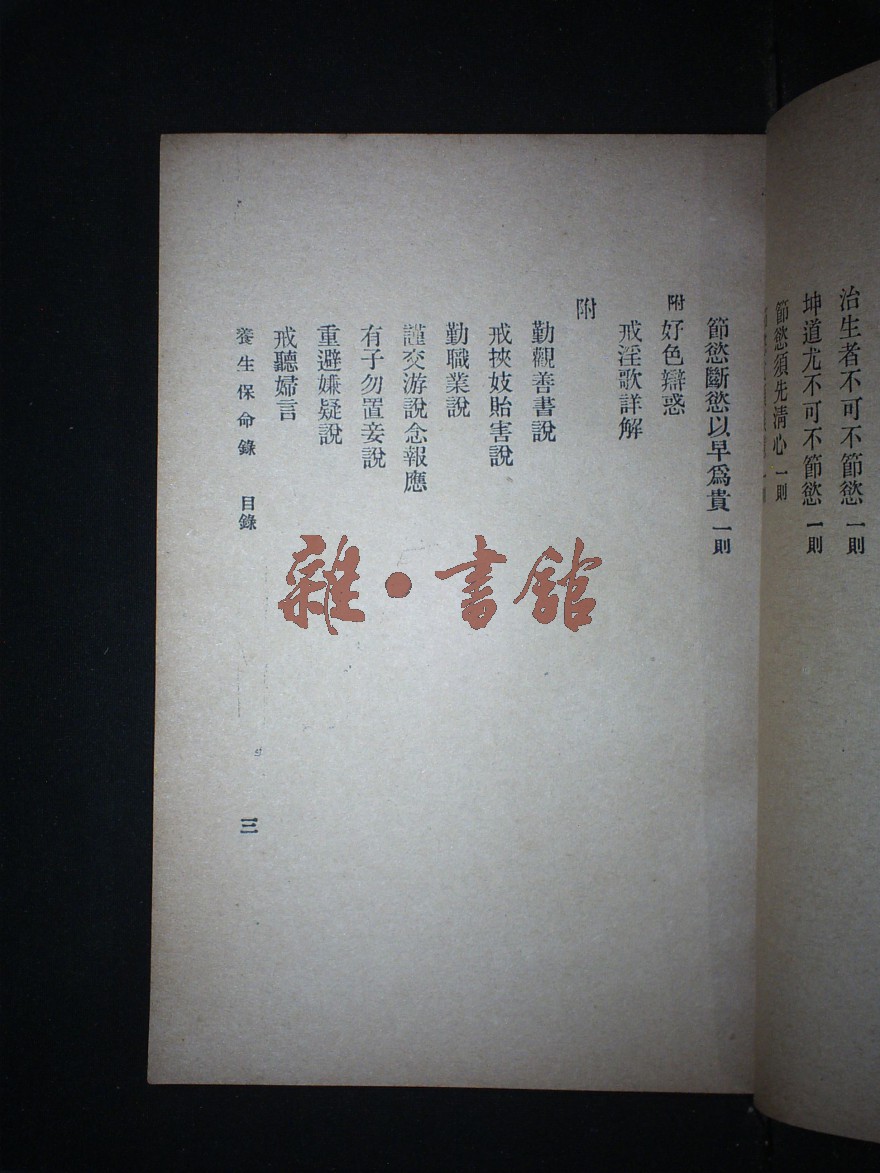 治生者不可不節慾 一則
坤道尤不可不節慾 一則
節慾須先清心 一則
一則
節慾斷慾以早爲貴 一則
附 好色辯惑
戒淫歌詳解
附
勤觀善書說
戒挾妓貽害說
勤職業說
謹交游說念報應
有子勿置妾說
重避嫌疑說
戒聽婦言
養生保命錄 目錄 三
雜·書館